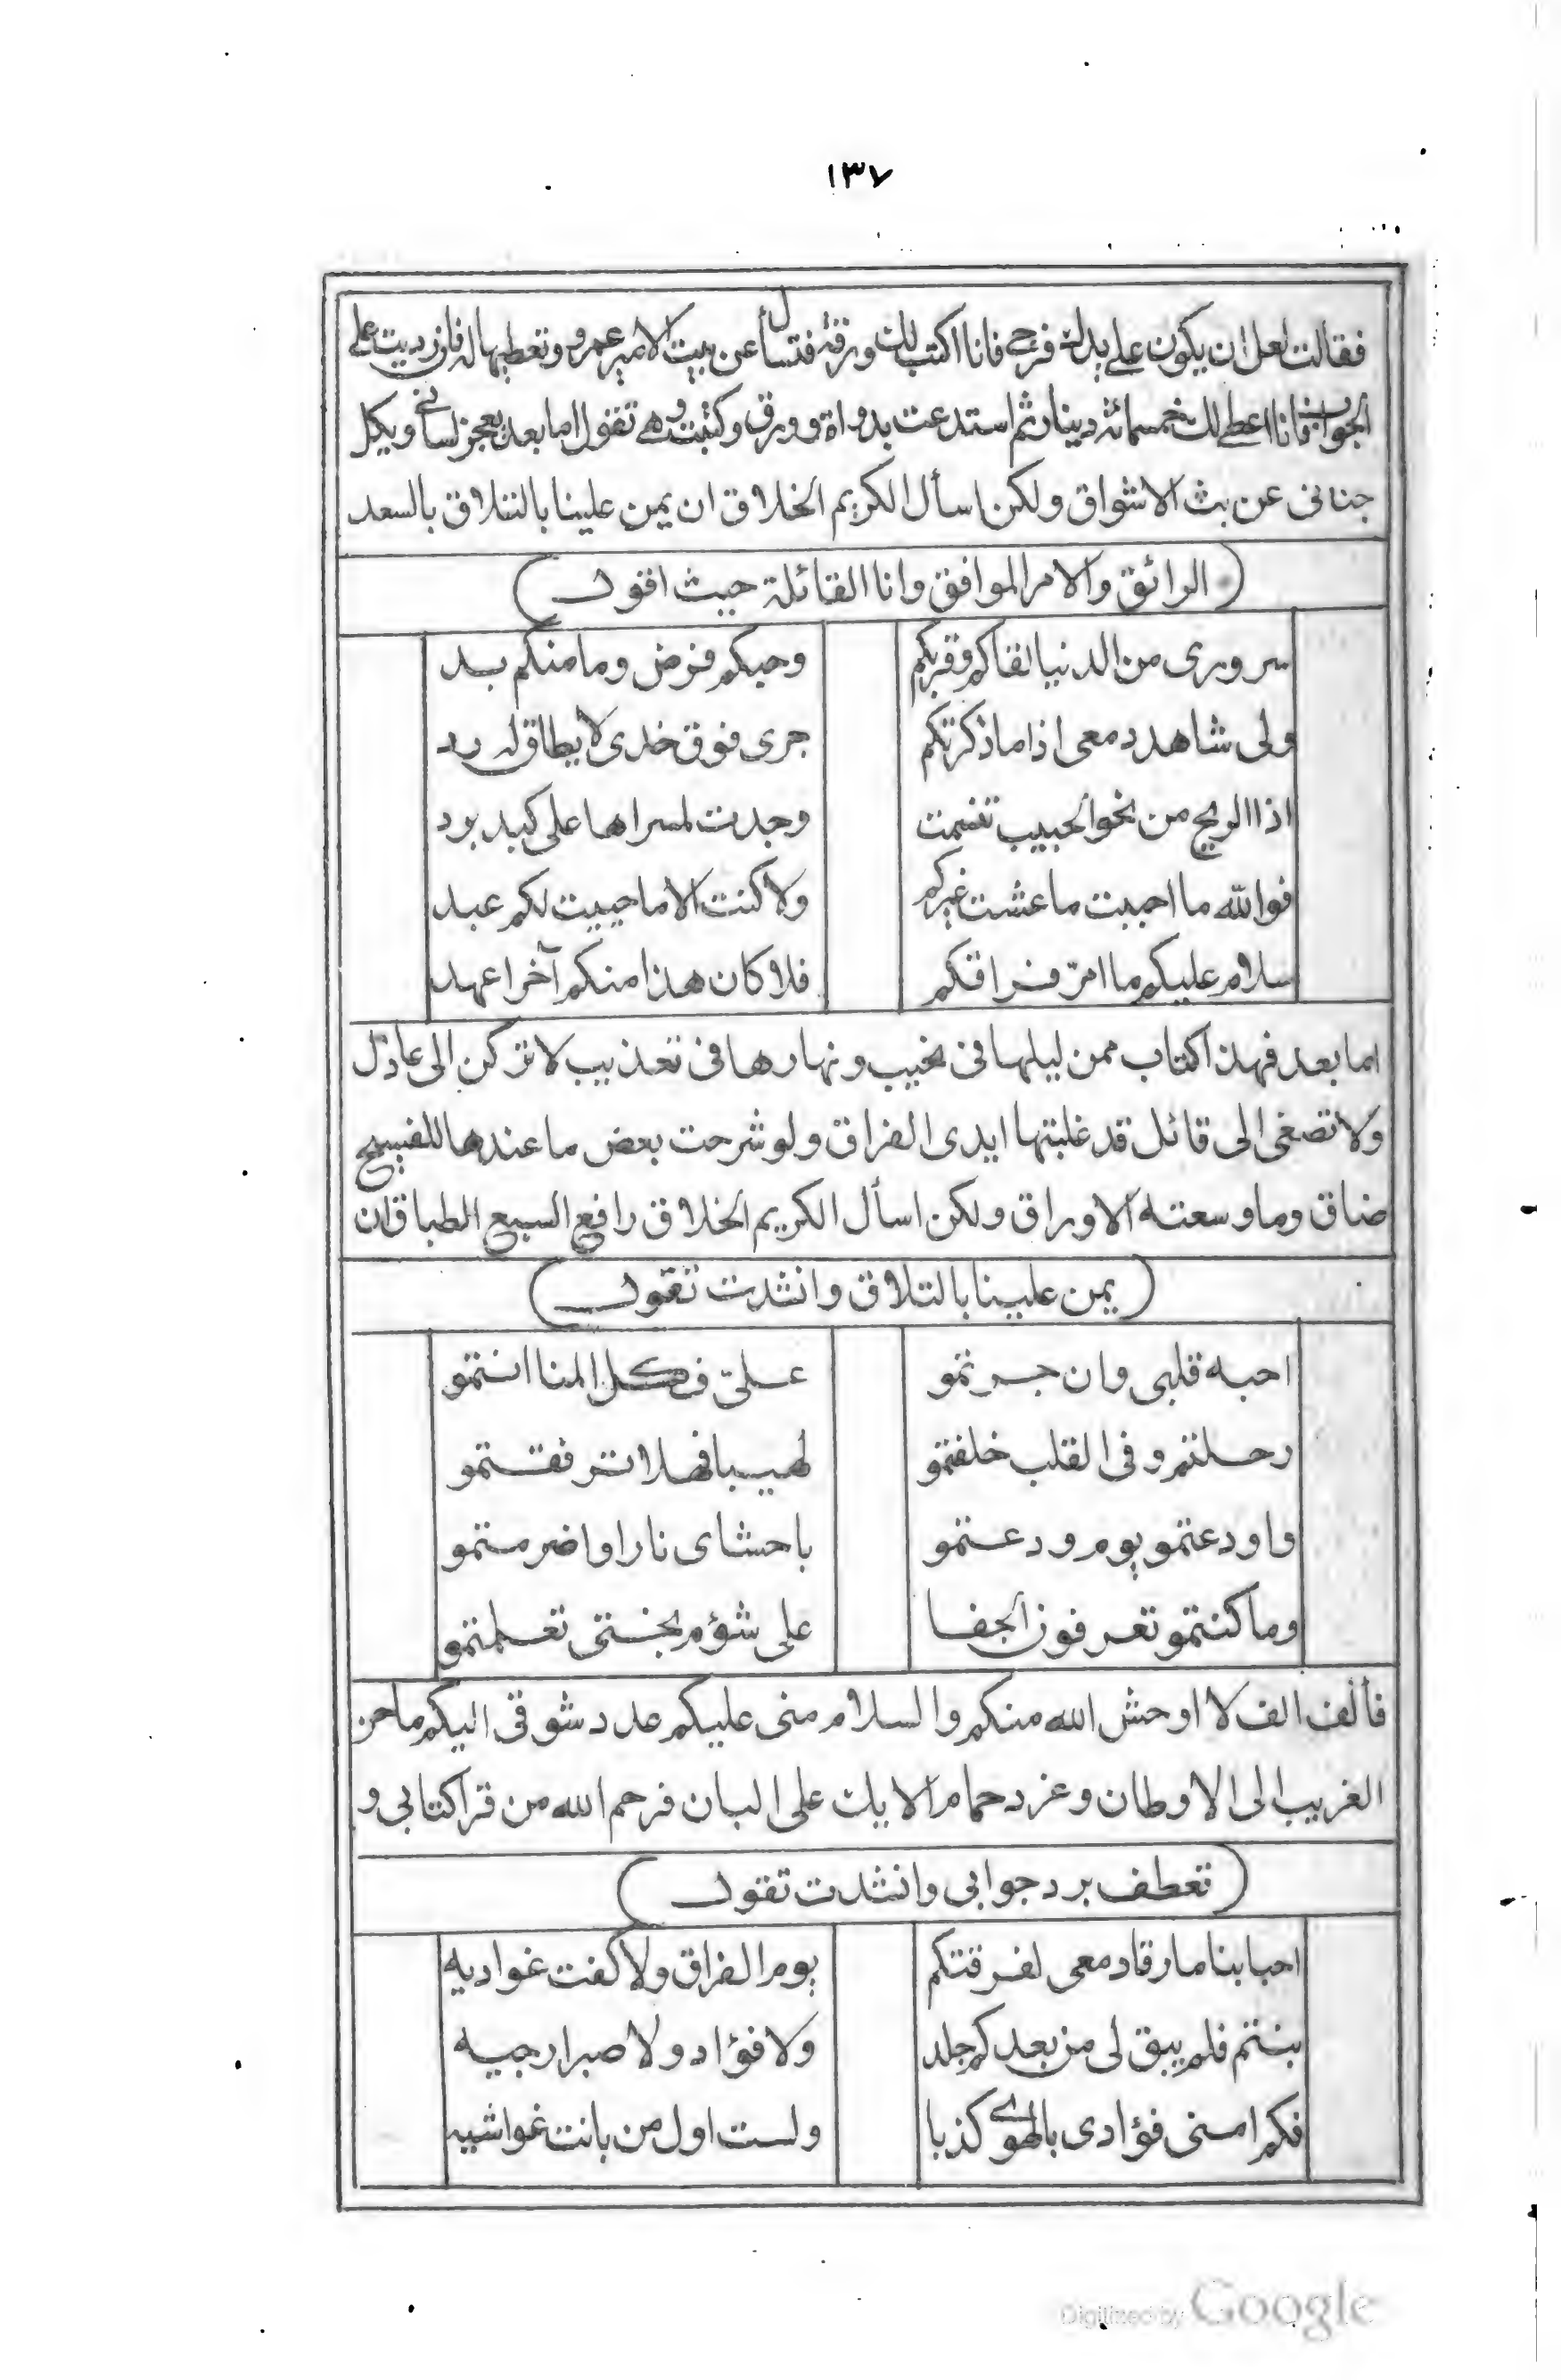 ١٣٧
فقالت لعل ان يكون على يدك فرج فانا اكتب لك ورقة فتسأل عن بيت الامير عمرو وتعطيها له فان رديت على
الجواب فانا اعطى لك خمسمائة دينار ثم استدعت بدواة وورق وكتبت وهى تقول اما بعد يعجز لسانى ويكل
جنانى عن بث الاشواق ولكن اسأل الكريم الخلاق ان يمن علينا بالتلاق بالسعد
( الرائق والامر الموافق وانا القائلة حيث اقول )
سرورى من الدنيا لقاكم وقربكم وحبكم فرض وما منكم بد
ولى شاهد دمعى اذا ما ذكرتكم جرى فوق خدى لا يطاق له رد
اذا الريح من نحو الحبيب تنسمت وجدت لمسراها على كبد برد
فوالله ما احببت ما عشت غيركم ولا كنت الا ما حييت لكم عبد
سلام عليكم ما امرّ فراقكم فلا كان هذا منكم آخرا عهد
اما بعد فهذ اكتاب ممن ليلها فى نحيب ونهارها فى تعذيب لا تركن الى عاذل
ولا تصغى الى قائل قد غلبتها ايدى الفراق ولو شرحت بعض ما عندها للفسيح
ضاق وما وسعته الاوراق ولكن اسأل الكريم الخلاق رافع السبع الطباق ان
( يمن علينا بالتلاق وانشدت تقول )
احبه قلبى وان جرتمو علىّ فكل المنا انتمو
رحلتم وفى القلب خلفتمو لهيبا فهلا ترفقتمو
واودعتمو يوم ودعتمو باحشاى نارا واضرمتمو
وما كنتمو تعرفون الجفا على شؤم بختى تعلمتمو
فألف الف لا اوحش الله منكم والسلام منى عليكم عدد شوقى اليكم ما حن
الغريب الى الاوطان وغرد حمام الايك على البان فرحم الله من قرا كتابى و
( تعطف برد جوابى وانشدت تقول )
احبابنا ما رقا دمعى لفرقتكم يوم الفراق ولا كفت غواديه
بنتم فلم يبق لى من بعدكم جلد ولا فؤاد ولا صبر ارجيه
فكم امنى فؤادى بالهوى كذبا ولست اول من بانت غواشيه
Digitized by Google